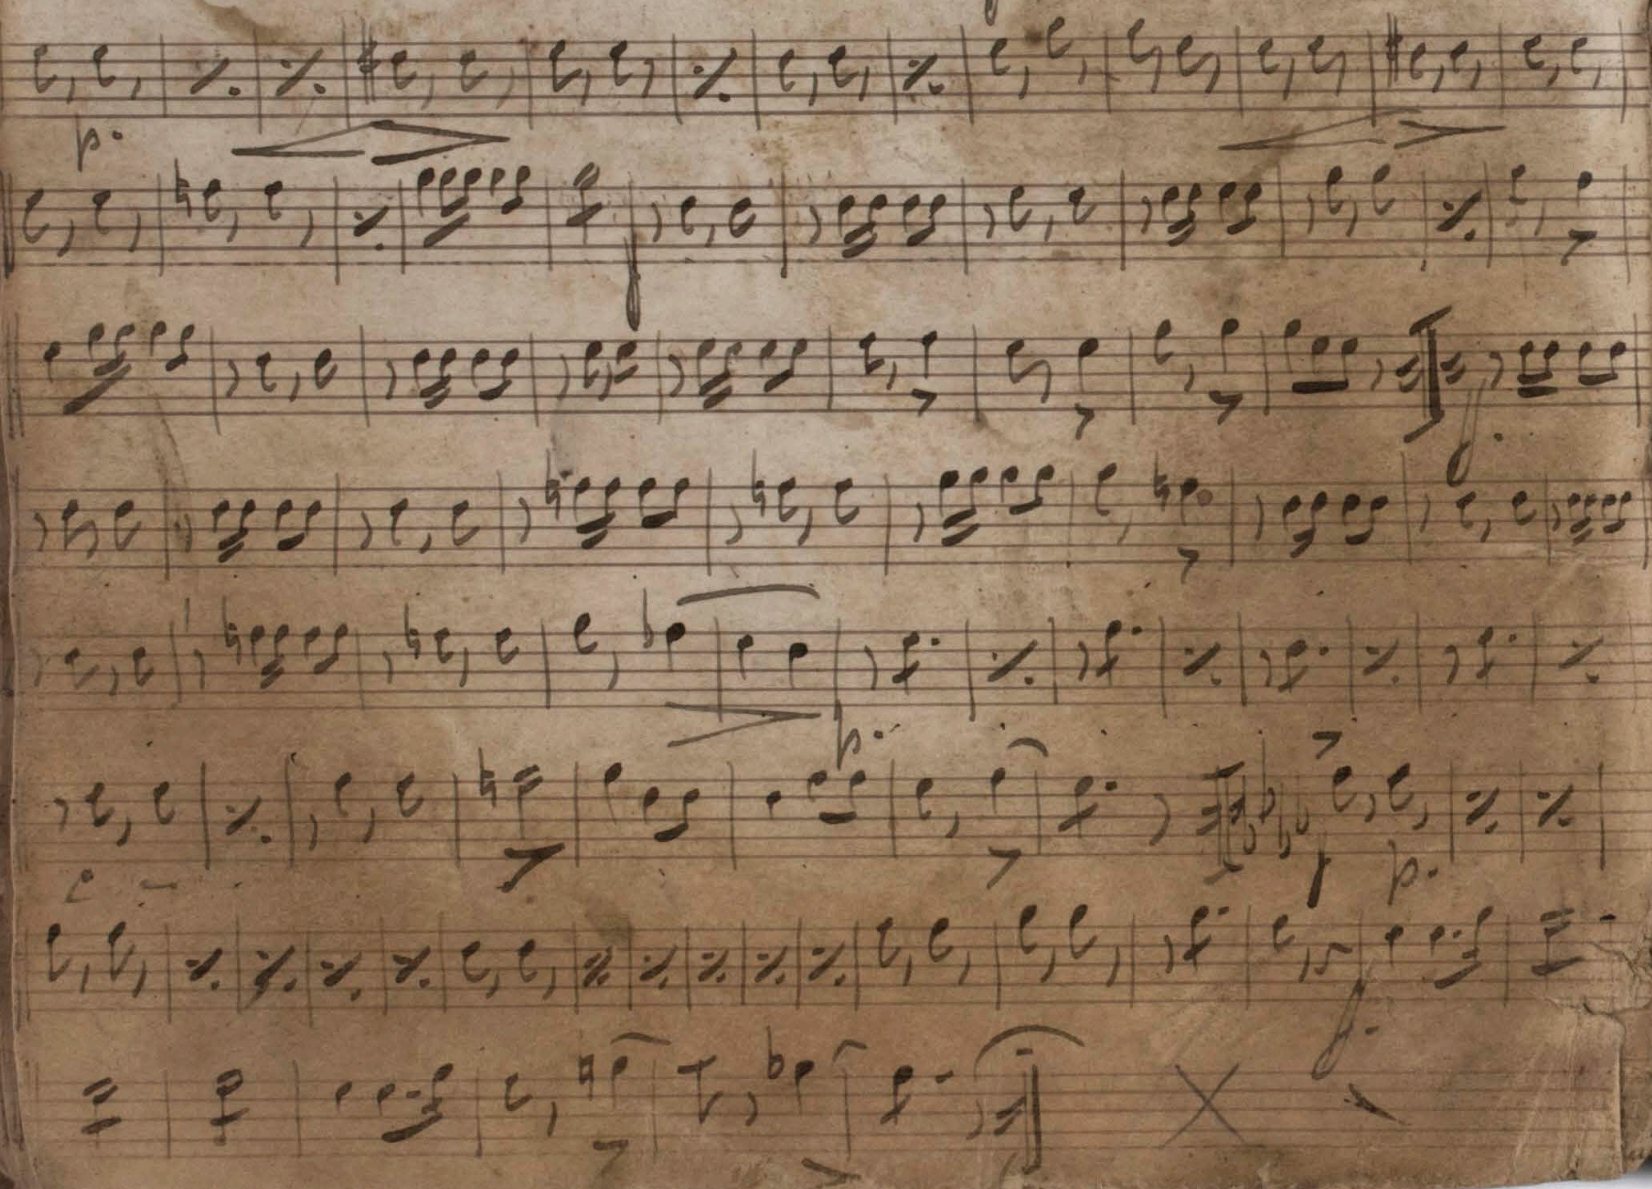 p.
f.
p.
p.
f.